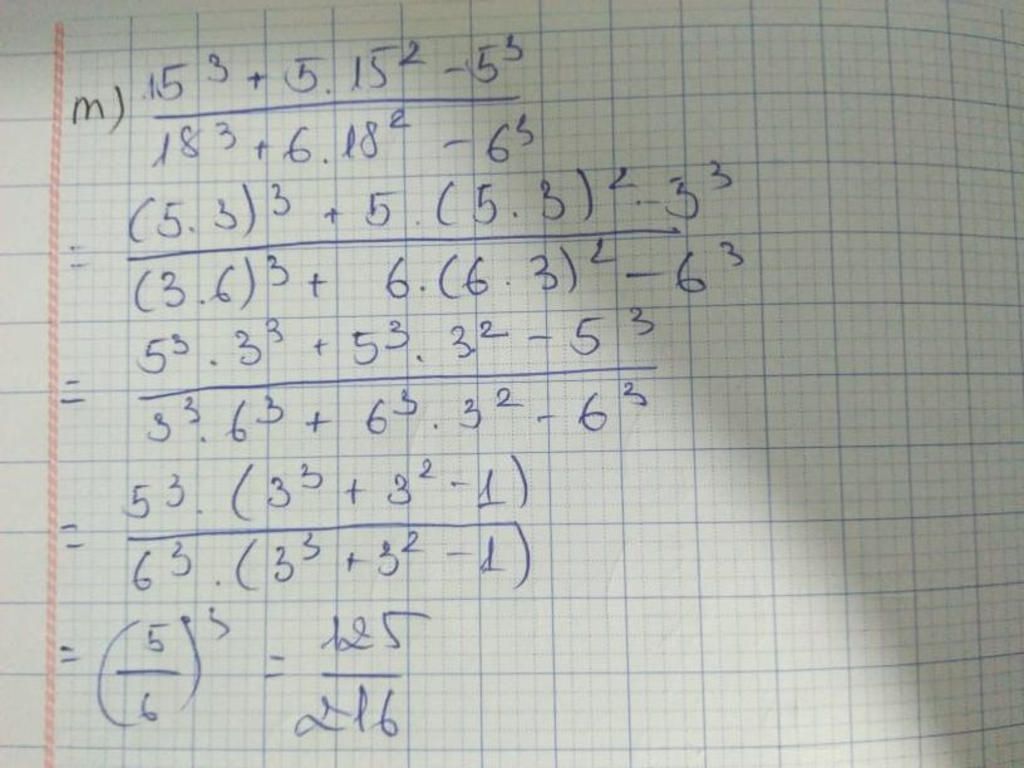 m) 15³ + 5.15² - 5³
18³ + 6.18² - 6³
= (5.3)³ + 5.(5.3)² - 3³
(3.6)³ + 6.(6.3)² - 6³
= 5³.3³ + 5³.3² - 5³
3³.6³ + 6³.3² - 6³
= 5³.(3³ + 3² - 1)
6³.(3³ + 3² - 1)
= (5/6)³ = 125/216